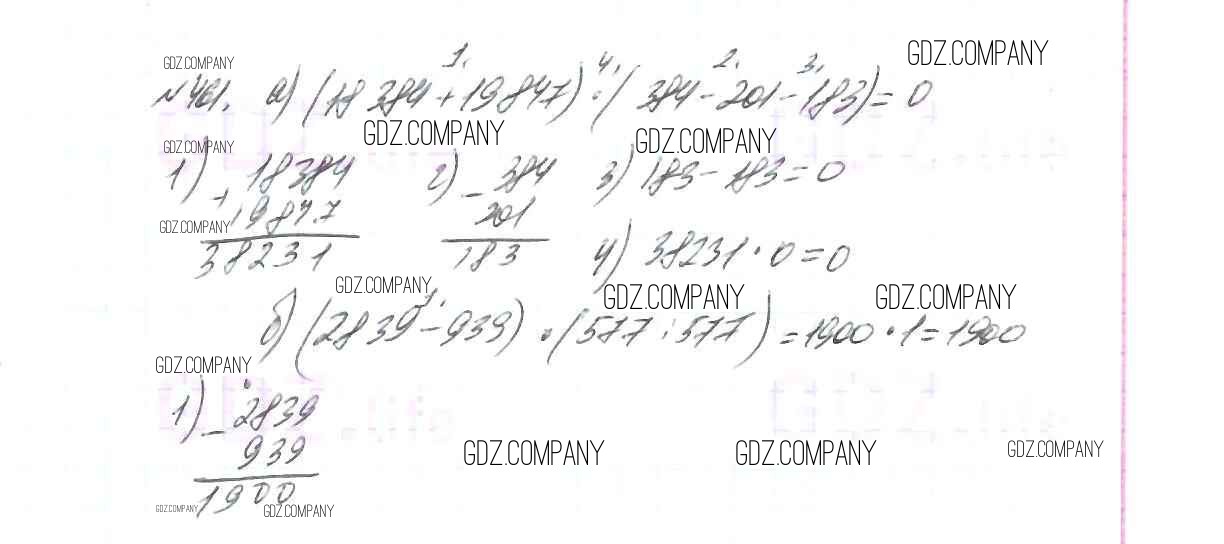 GDZ.COMPANY
1. 4. 2. 3.
GDZ.COMPANY
№461. а) (18 384 + 19 847) · (384 - 201 - 183) = 0
GDZ.COMPANY GDZ.COMPANY
GDZ.COMPANY
1) + 18384 2) - 384 3) 183 - 183 = 0
19847 201
GDZ.COMPANY
38231 183 4) 38231 · 0 = 0
GDZ.COMPANY GDZ.COMPANY GDZ.COMPANY
1.
б) (2839 - 939) · (577 : 577) = 1900 · 1 = 1900
GDZ.COMPANY
1) - 2839
939
GDZ.COMPANY GDZ.COMPANY GDZ.COMPANY
1900
GDZ.COMPANY GDZ.COMPANY